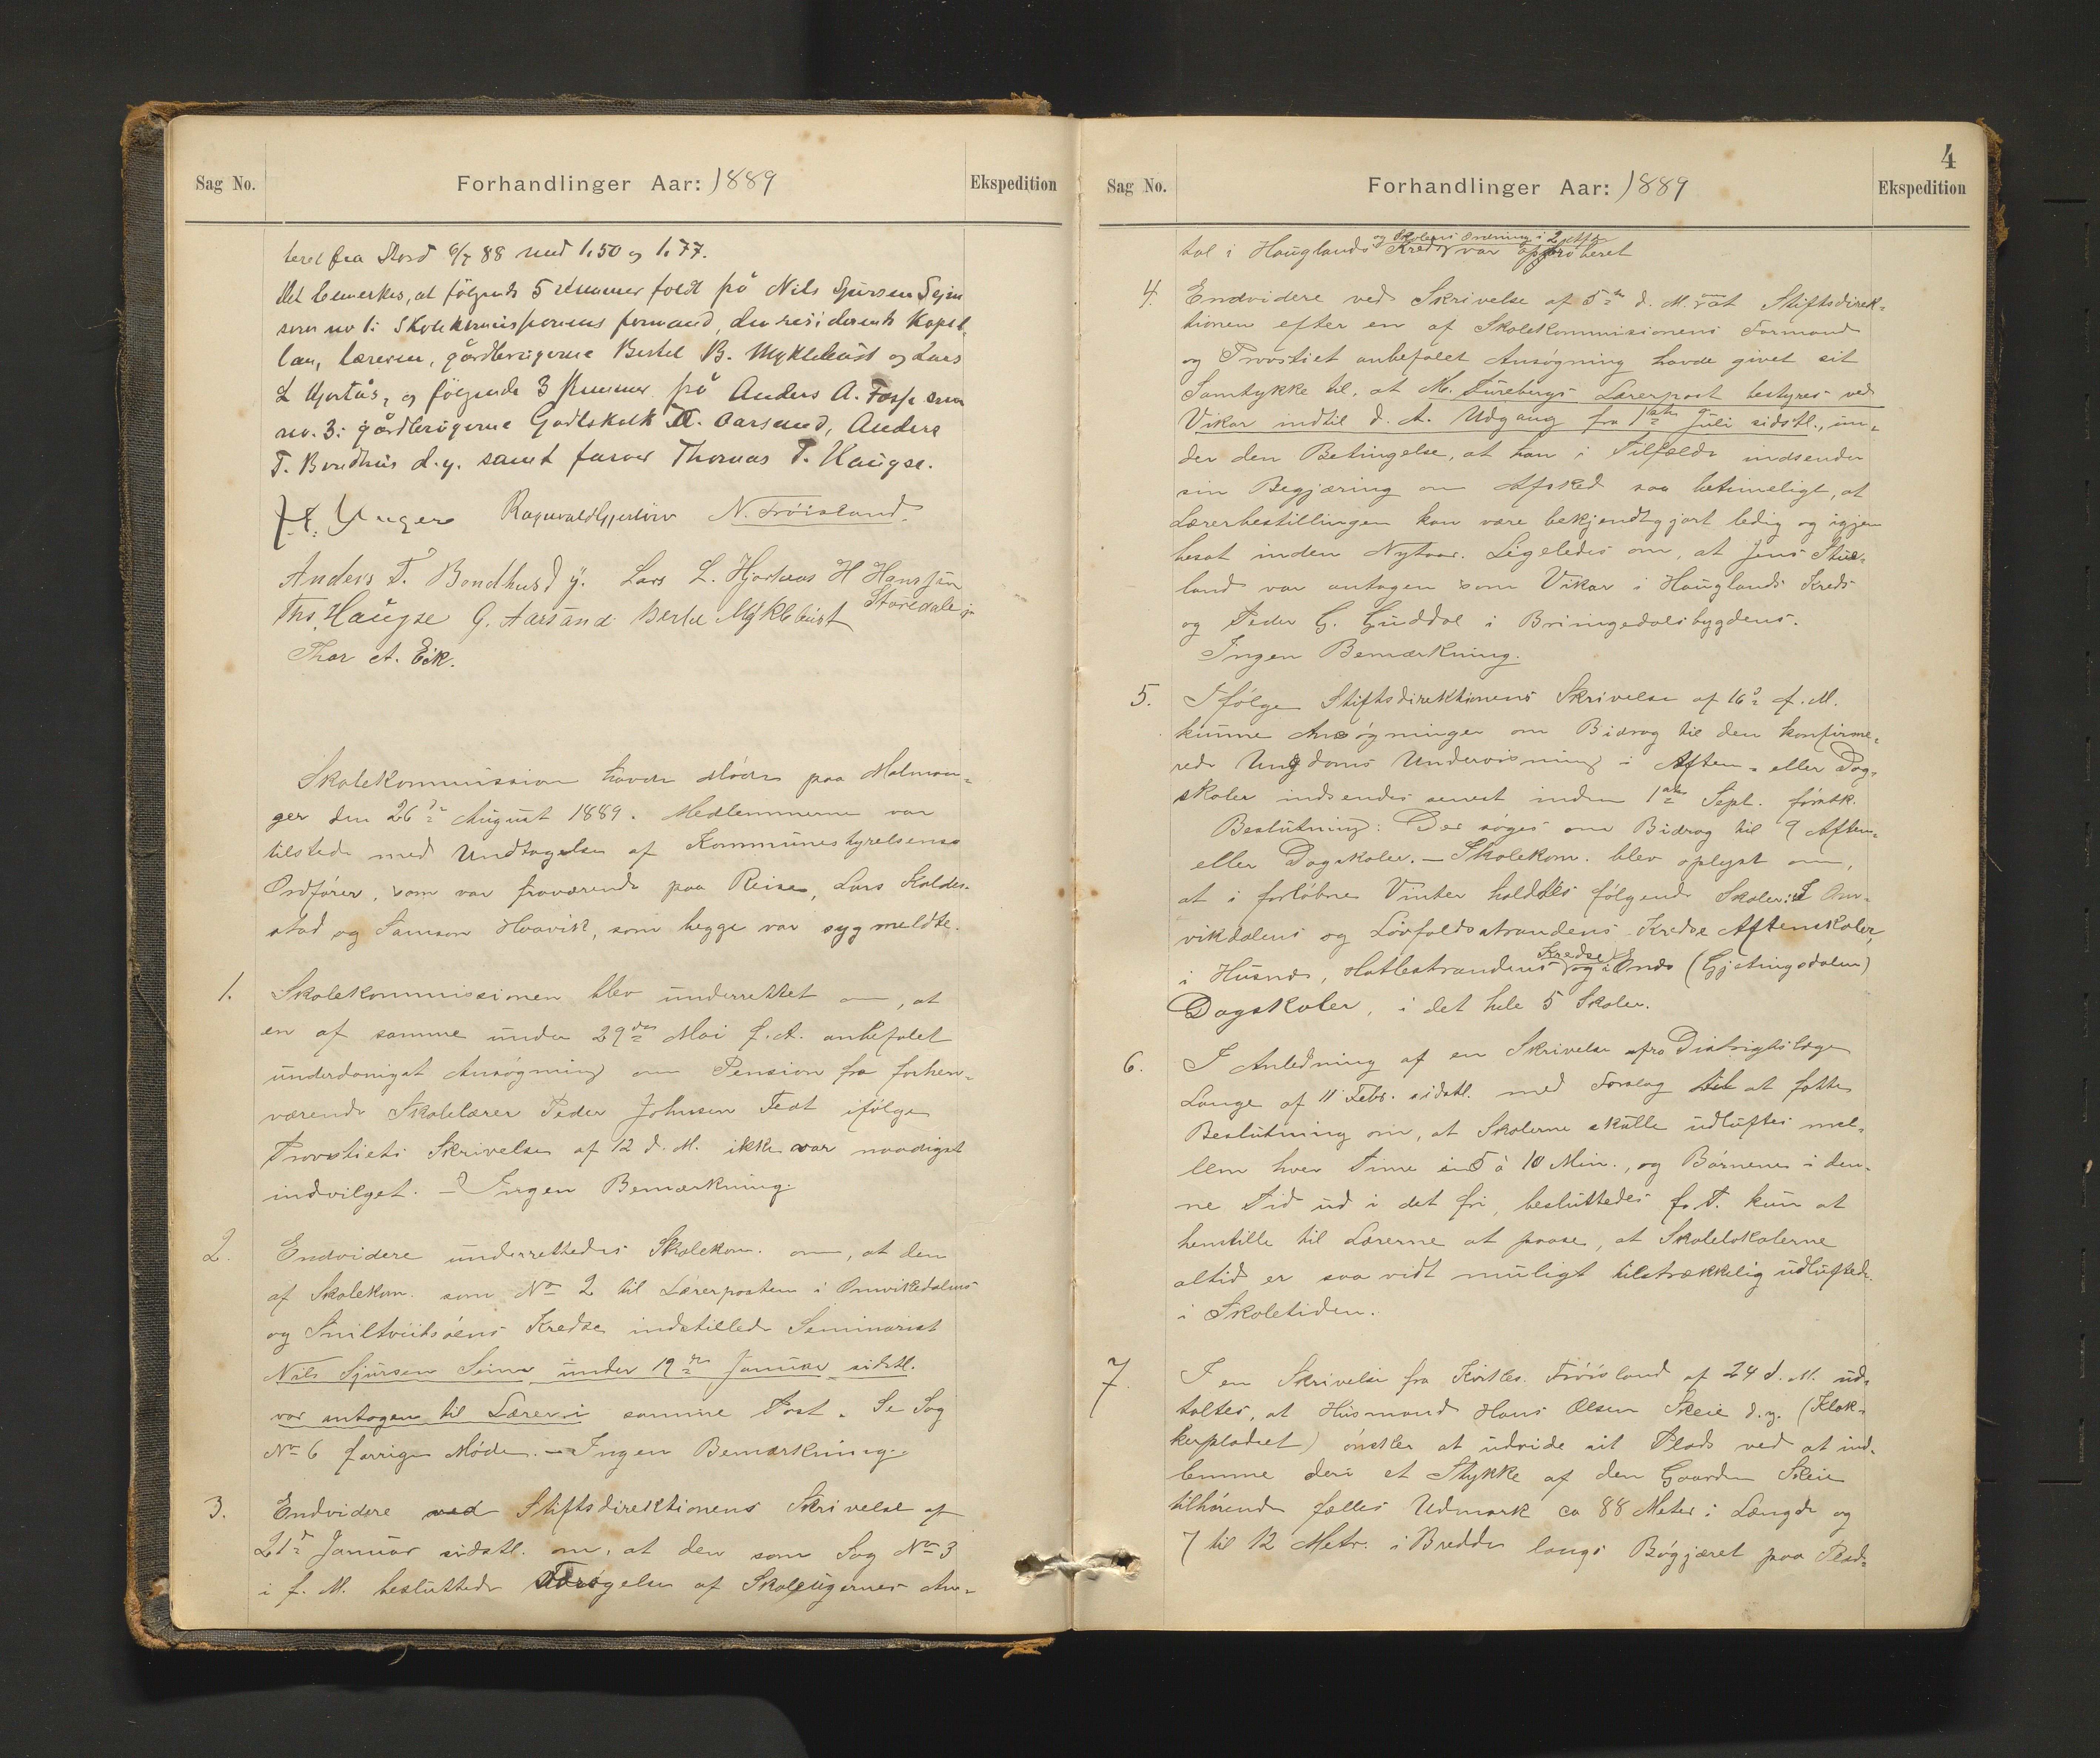 Sag No.
Forhandlinger Aar: 1889
Ekspedition
teret fra Stord 6/7 88 med 1.50 og 1.77.
Det bemerkes, at følgende 5 stemmer faldt på Nils Sjursen Seim
som no 1: Skolekommisjonens formand, den residerende Kapel-
lan, læreren, gårdbrugerne Bertel B. Myklebust og Lars
L Hjortås, og følgende 3 stemmer på Anders A. Fosse som
no. 3: gårdbrugerne Godtskalk Aarsand, Anders
T. Bondhus d.y. samt farver Thomas T. Haugse.
Unger Ragnvald Gjerløw N. Tröisland.
Anders T. Bondhus d y. Lars L. Hjortaas H Hansson
Ths. Haugse G. Aarsand Bertel Myklebust Staredale
Thor A. Eik.
Skolekommission havde Møde paa Malman-
ger den 26de August 1889. Medlemmerne var
tilstede med Undtagelse af Kommunestyrelsens
Ordfører, som var fraværende paa Reise, Lars Kalde-
stad og Samson Hvavik, som begge var sygmeldte.
1. Skolekommissionen blev underrettet om, at
en af samme under 29de Mai f. A. anbefalet
underdanigst Ansøgning om Pension fra forhen-
værende Skolelærer Peder Johnsen Teet ifølge
Provstiets Skrivelse af 12 d. M. ikke var naadigst
indvilget. – Ingen Bemærkning.
2. Endvidere underrettedes Skolekom. om, at den
af Skolekom. som No 2 til Lærerposten i Omvikedalens
og Sniltveitsöens Kredse indstillede Seminarist
Nils Sjursen Seim under 19de Januar sidstl.
var antagen til Lærer i samme Post. Se Sag
No 6 forrige Møde. – Ingen Bemærkning.
3. Endvidere ved Stiftsdirektionens Skrivelse af
21de Januar sidstl. om, at den som Sag No 3
i f. M. besluttede Forøgelse af Skoleugernes An-
4
Sag No.
Forhandlinger Aar: 1889
Ekspedition
og Skolens Ordning i 2
tal i Hauglands Kreds var approberet
4. Endvidere ved Skrivelse af 5te d. M. at Stiftsdirek-
tionen efter en af Skolekommissionens Formand
og Provstiet anbefalet Ansøgning havde givet sit
Samtykke til, at M. Turebergs Lærerpost bestyres ved
Vikar indtil d. A. Udgang fra 1ste Juli sidstl., un-
der den Betingelse, at han i Tilfælde indsender
sin Begjæring om Afsked saa betimeligt, at
Lærerbestillingen kan være bekjendtgjort ledig og igjen
besat inden Nytaar. Ligeledes om, at Jens Stue-
land var antagen som Vikar i Hauglands Kreds
og Peder G. Guddal i Bringedalsbygdens.
Ingen Bemærkning.
5. Ifølge Stiftsdirektionens Skrivelse af 16de f. M.
kunne Ansøgninger om Bidrag til den konfirme-
rede Ungdoms Undervisning i Aften- eller Dag-
skoler indsendes senest inden 1ste Sept. førstk.
Beslutning: Der søges om Bidrag til 9 Aften-
eller Dagskoler. – Skolekom. blev oplyst om,
at i forløbne Vinter holdtes følgende Skoler: I Om-
vikdalens og Løvfaldsstrandens Kredse Aftenskoler,
i Husnes, Hatlestrandens Kredse og i Ænes (Gjetingsdalen)
Dagskoler, i det hele 5 Skoler.
6. I Anledning af en Skrivelse fra Distrigtslæge
Lange af 11 Febr. sidstl. med Forslag til at fatte
Beslutning om, at Skolerne skulle udluftes mel-
lem hver Time i 5 à 10 Min., og Børnene i den-
ne Tid ud i det fri, besluttedes f. T. kun at
henstille til Lærerne at paase, at Skolelokalerne
altid er saa vidt muligt tilstrækkelig udluftede
i Skoletiden.
7. I en Skrivelse fra Kirkes. Tröisland af 24 d. M. ud-
taltes, at Husmand Hans Olsen Skeie d.y. (Klok-
kerpladset) ønsker at udvide sit Plads ved at ind-
lemme deri et Stykke af den Gaarden Skeie
tilhørende fælles Udmark ca 88 Meter i Længde og
7 til 12 Metr. i Bredde langs Bøgjæret paa Plad-